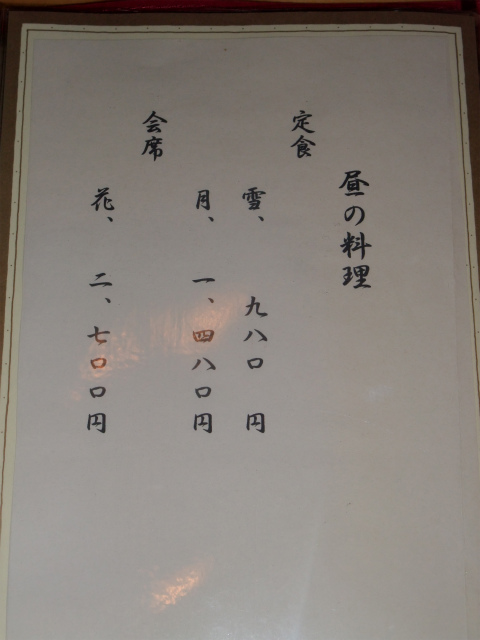 昼の料理
定食
雪、 九八〇 円
月、 一、四八〇円
会席
花、 二、七〇〇円